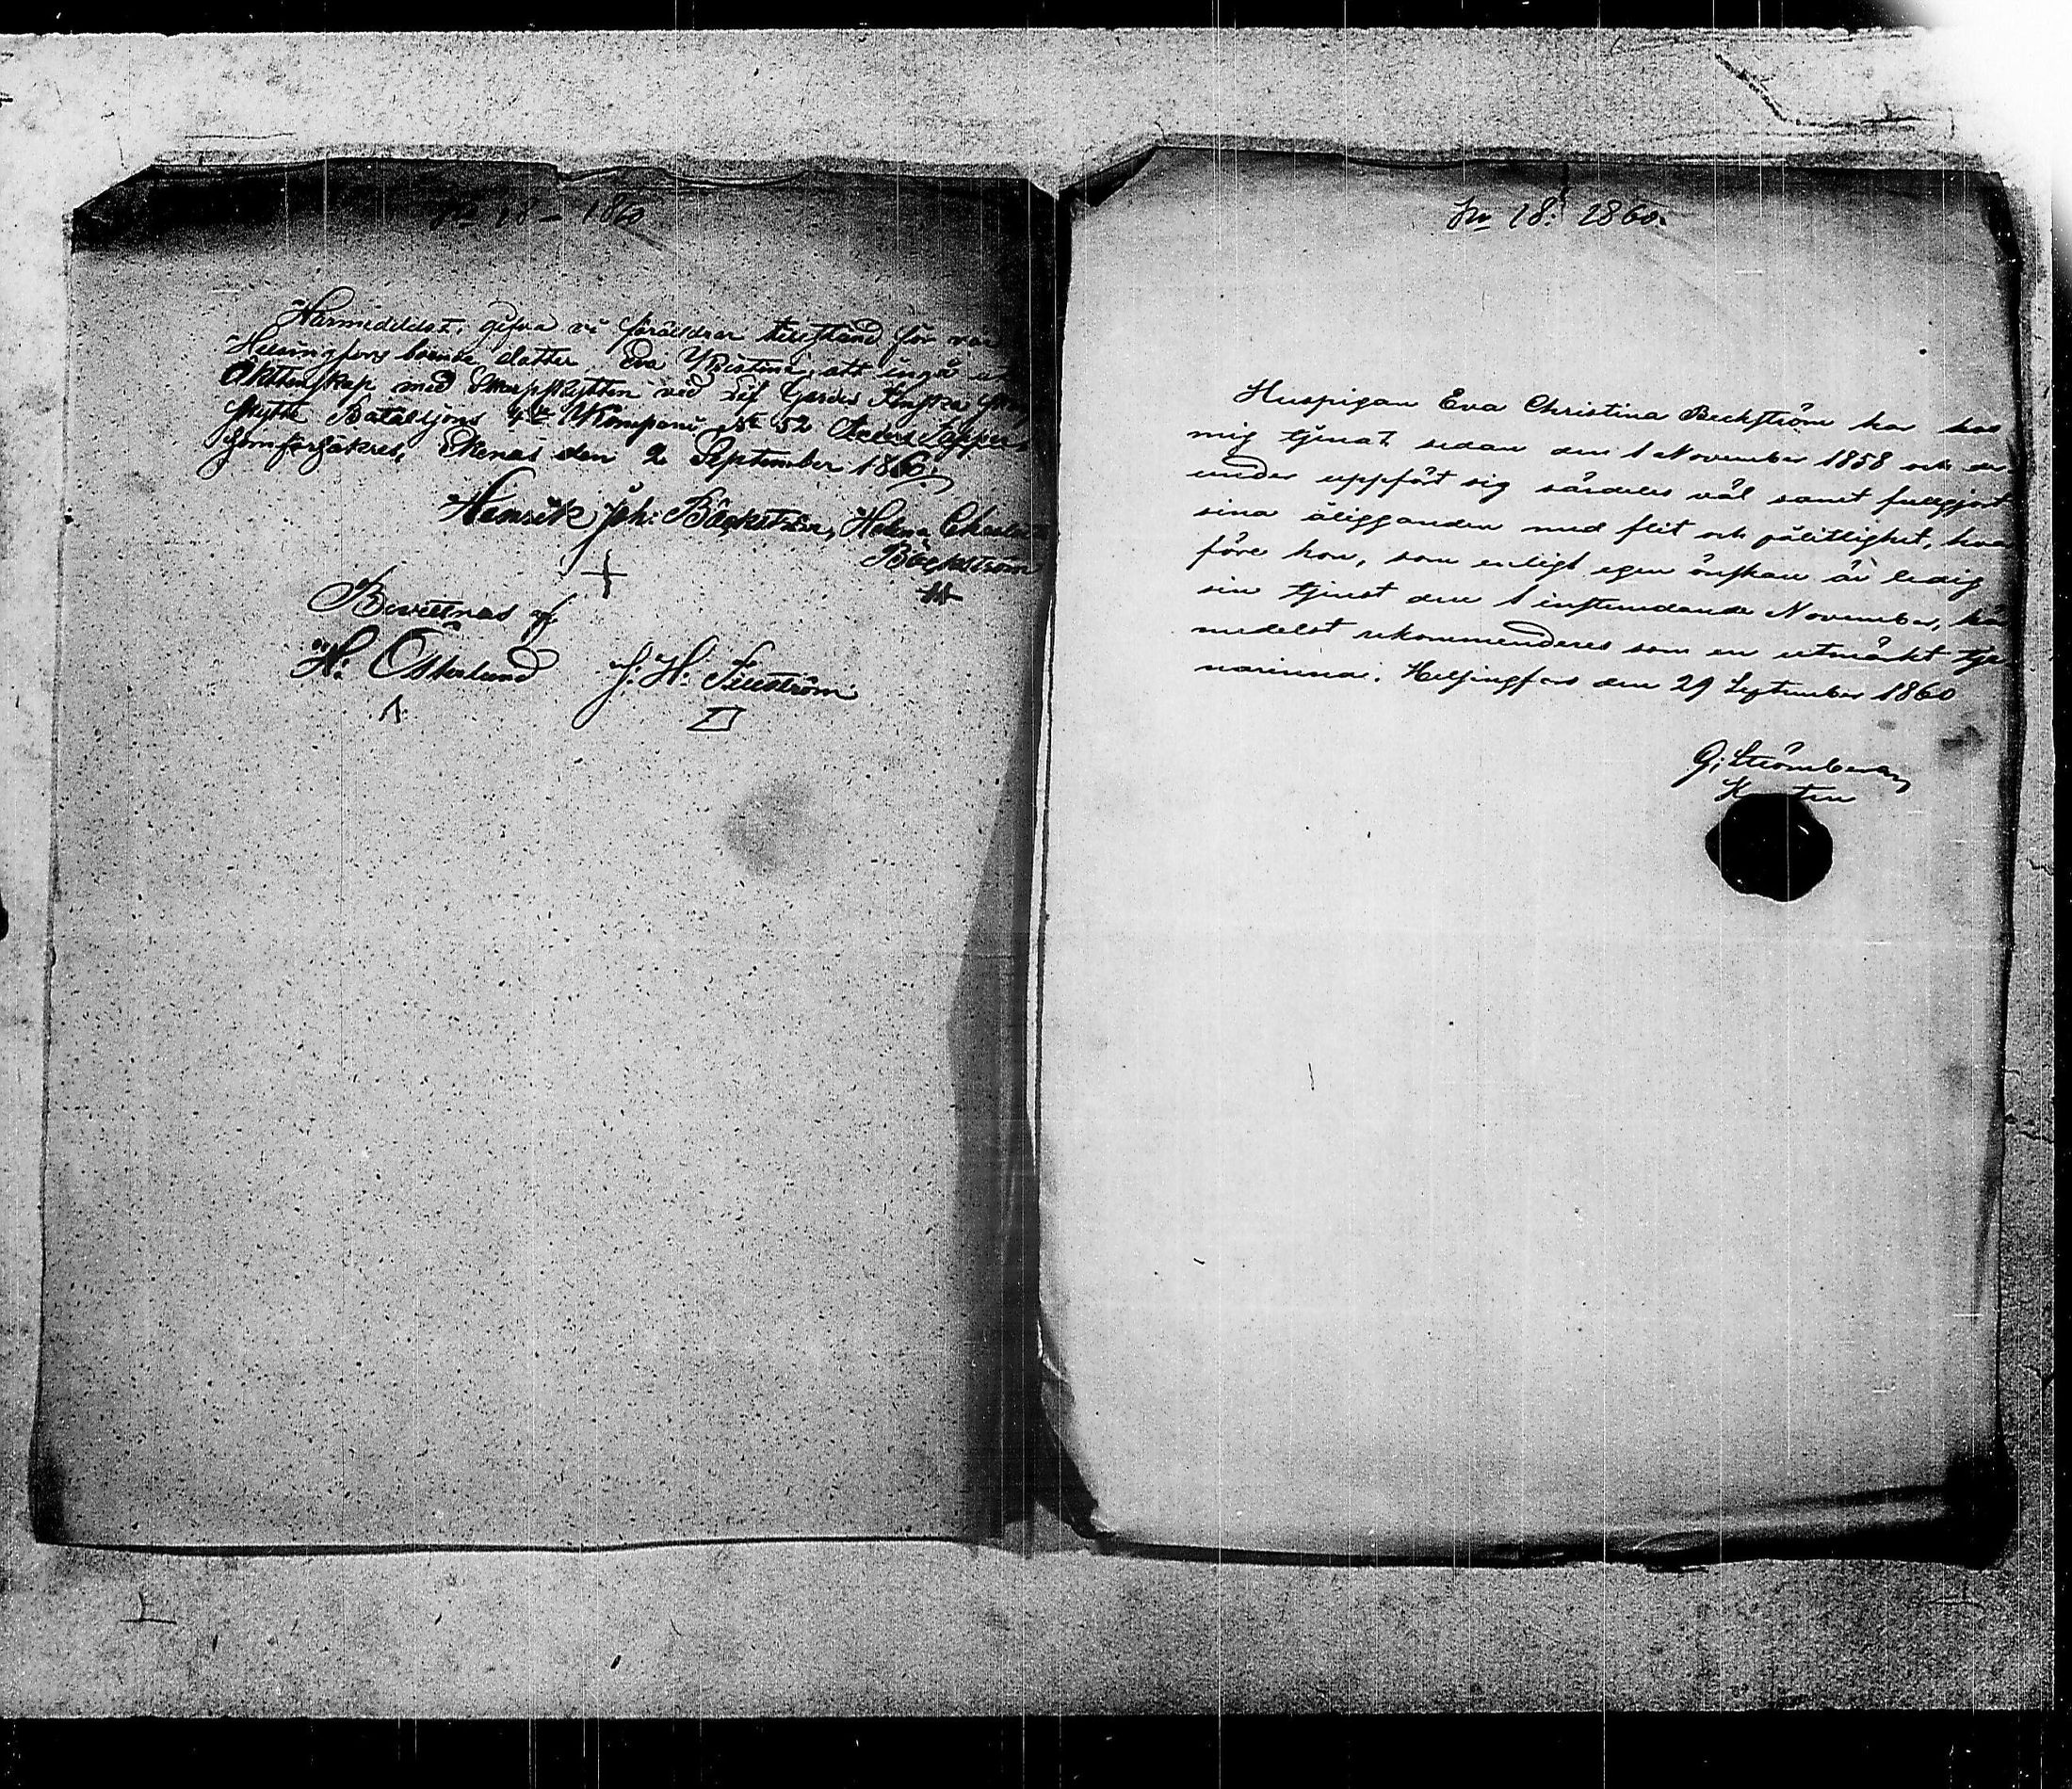 No 18 – 1860
Härmedelst, gifva vi föräldrar tillstånd för vår
Helsingfors boende dotter Eva Kristina, att ingå
Äktenskap med Skarpskytten vid Lif Gardes Finska
skytte Bataljons 4de Kompani No 52
somförsäkras, Ekenäs den 2 September 1860.
Henrik Joh: Bäckström, Helena
Bäckström
Bevittnas af
H: Österlund J: H:
No 18. 1860.
Huspigan Eva Christina Beckström har hos
mig tjenat sedan den 1 November 1858 och der-
under uppfört sig särdeles väl samt fullgjort
sina åligganden med flit och pålitlighet, hvar
före hon, som enligt egen önskan är ledig
sin tjenst den 1 instundande November, här
medelst rekommenderes som en utmärkt tje-
narinna. Helsingfors den 29 September 1860
G: Strömberg